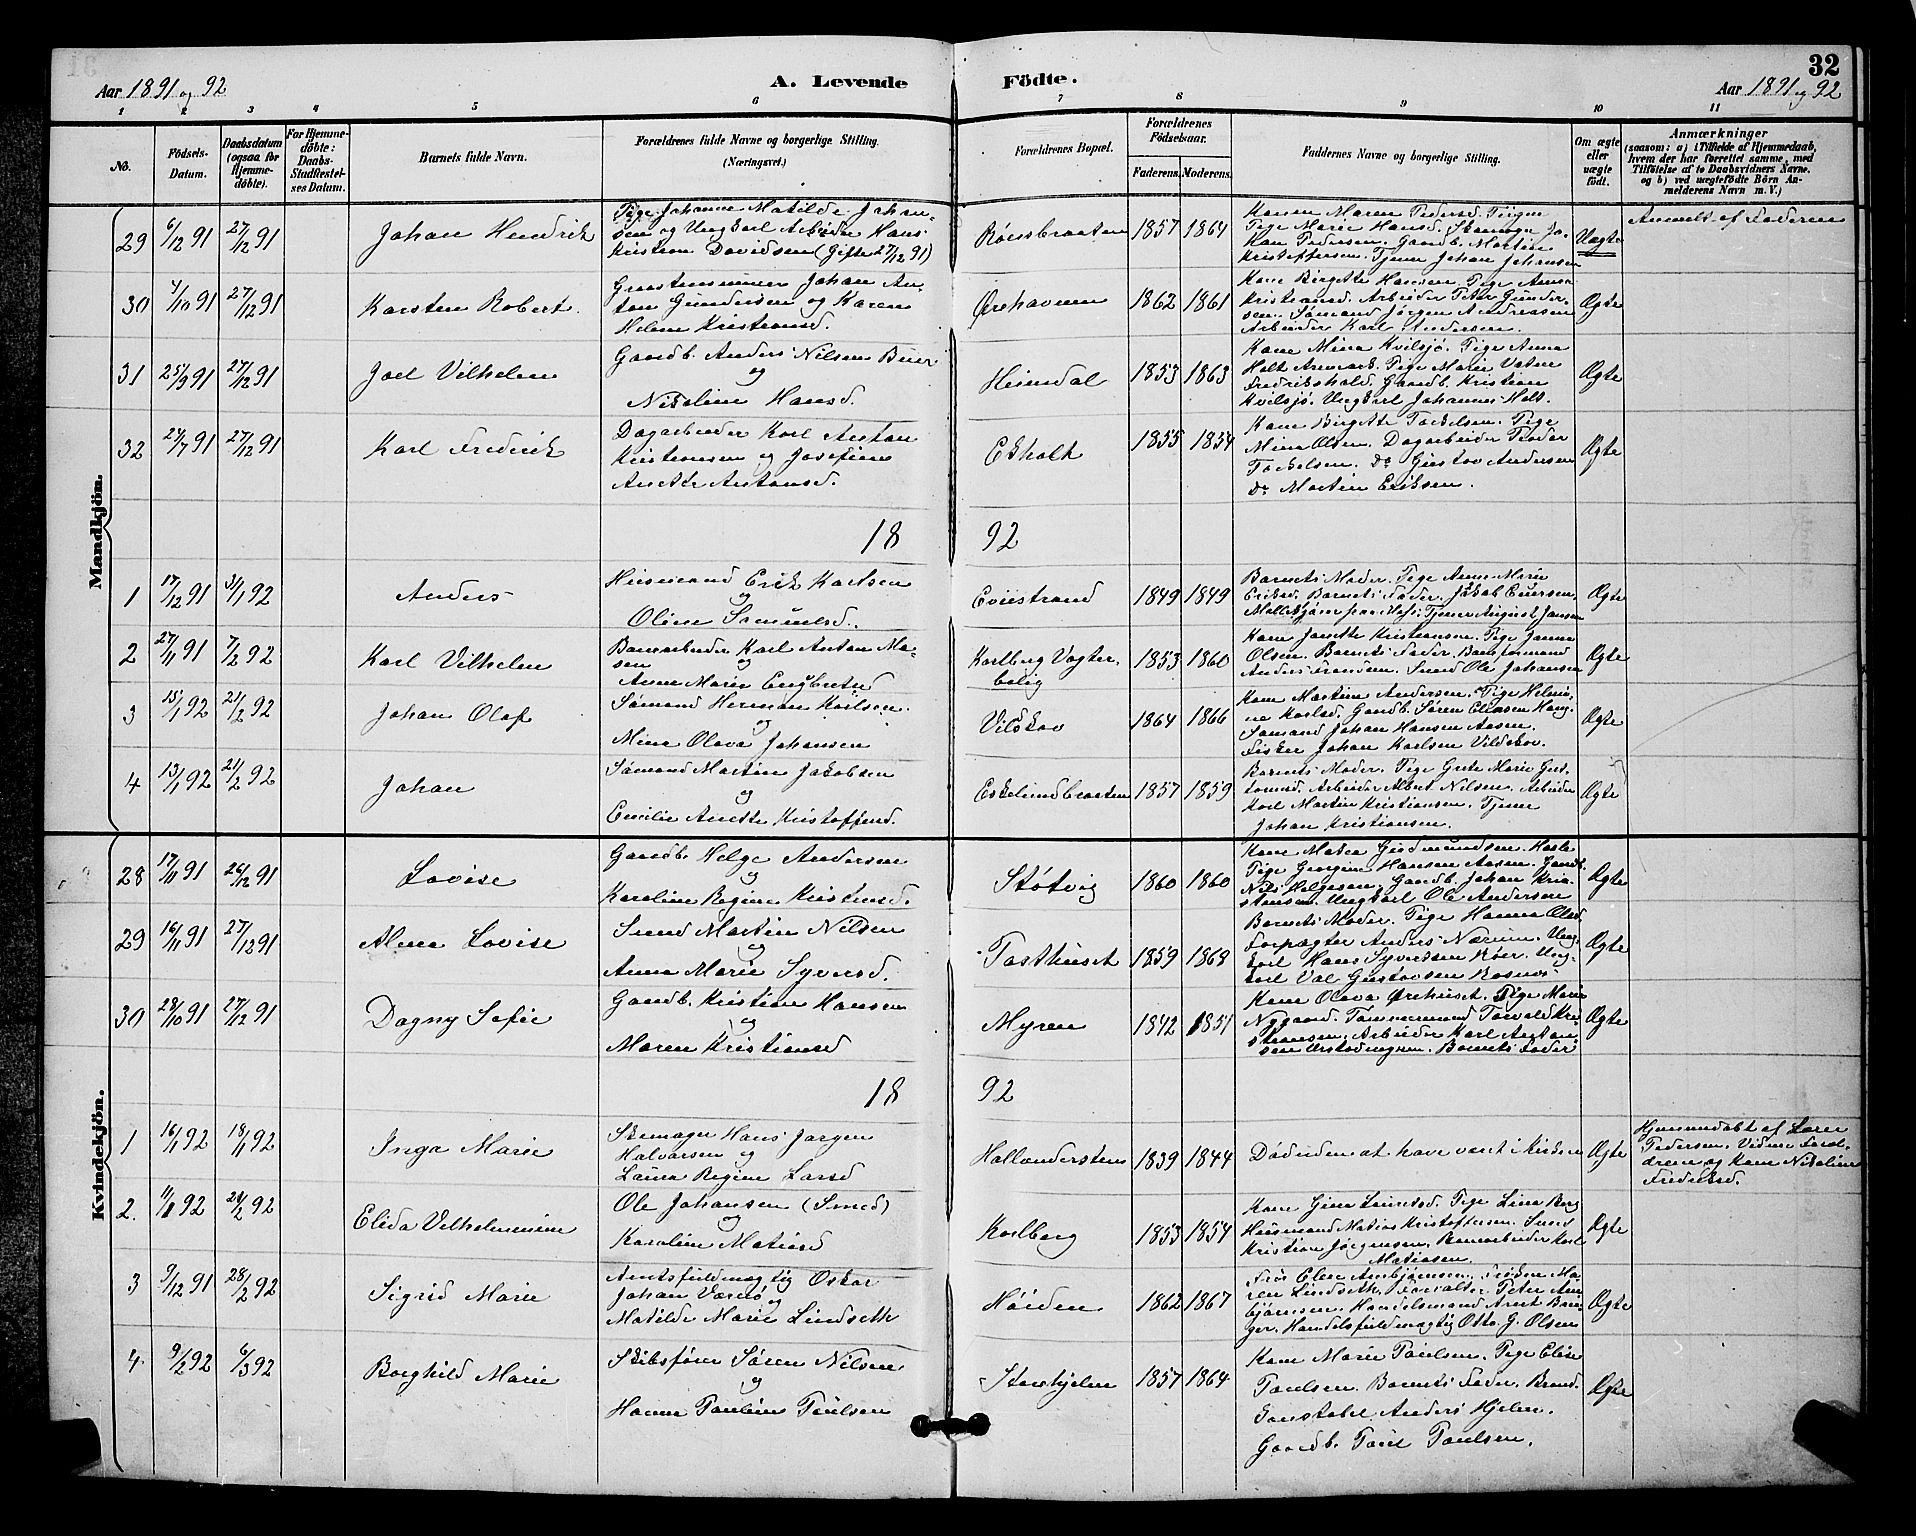 32
Aar 1891 og 92
A. Levende Födte.
Aar 1891 og 92
1 2 3 4 5 6 7 8 9 10 11
No.
Födsels-Datum.
Daabsdatum (ogsaa for Hjemme-döbte).
For Hjemme-döbte: Daabs-Stadfæstel-ses Datum.
Barnets fulde Navn.
Forældrenes fulde Navne og borgerlige Stilling. (Næringsvei.)
Forældrenes Bopæl.
Forældrenes Födselsaar.
Faderens. Moderens.
Faddernes Navne og borgerlige Stilling.
Om ægte eller uægte födt.
Anmærkninger
(saasom: a) i Tilfælde af Hjemmedaab,
hvem der har forrettet samme, med
Tilföielse af to Daabsvidners Navne,
og b) ved uægtefödte Börn An-
melderens Navn m. V.)
Mandkjön.
29 6/12 91 27/12 91 Johan Hendrik
Pige Johanne Matilde Johan-
sen og Ungkarl Arbeider Hans
Kristian Davidsen (Gifte 27/12 91)
1857 1864
Kone Maren Pedersd.
Pige Marie Hansd. Skomager Jo-
han Pedersen. Gaardb. Martin
Kristoffersen. Tjener Johan Johansen
Uægte
Anmeldt af Faderen
30 4/10 91 27/12 91 Karsten Robert.
Johan An-
ton Gundersen og Karen
Helene Kristiansd.
Ørehavnen 1862 1861
Kone Birgitte Hansen. Pige Anna
Kristiansd. Arbeider Peter Gunder-
sen. Sømand Jørgen Andreasen
Arbeider Karl Andersen.
Ægte
31 25/9 91 27/12 91 Joel Vilhelm
Gaardb. Anders Nilsen Buer
og
Nikoline Hansd.
Heimdal 1853 1863
Kone Mina Kvilsjø. Pige Anna
Holt Aremark. Pige Marie Vatne
Fredrikshald. Gaardb. Kristian
Kvilsjø. Ungkarl Johannes Holt.
Ægte
32 24/7 91 27/12 91 Karl Fredrik
Dagarbeider Karl Anton
Kristiansen og Josefine
Anette Antonsd.
Ekholt 1855 1854
Kone Birgitte Torkelsen. Pige
Mina Olsen. Dagarbeider Peder
Torkelsen. Do Gustav Andersen
Do Martin Eriksen.
Ægte
18 92
1 17/12 91 31/1 92 Anders
Husmand Erik Karlsen
og
Oline Samuelsd.
Eviestrand 1849 1849
Barnets Moder. Pige Anne Marie
Eriksd. Barnets Fader. Jakob Eversen
Tjener August Jansen
Ægte
2 27/11 91 7/2 92 Karl Vilhelm
Banearbeider Karl Anton Ma-
sen og
Anne Marie Engbretsd
Karlberg Vogter-
bolig
1853 1860
Kone Janette Kristiansen. Pige Janna
Olsen. Barnets Fader. Baneformand
Anders Brandem. Smed Ole Johansen
Ægte
3 15/1 92 21/2 92 Johan Olaf
Sømand Herman Karlsen.
og
Mina Olava Johansen
Vilskov 1864 1866
Kone Martine Andersen. Pige Helmi-
ne Karlsd. Gaardb. Søren Eliasen Haug-
Sømand Johan Hansen Aasen.
Fisker Johan Karlsen Vildskov.
Ægte
4 13/1 92 21/2 92 Johan
Sømand Martin Jakobsen
og
Cecilie Anette Kristoffersd.
Eskelundbraaten 1857 1859
Barnets Moder. Pige Grete Marie Gut-
tormsd. Arbeider Albert Nilsen. Arbeider
Karl Martin Kristiansen. Tjener
Johan Kristiansen.
Ægte
Kvindekjön.
28 17/11 91 26/12 91 Lovise
Gaardb. Helge Andersen
og
Karoline Regine Kristensd.
Støtvig 1860 1860
Kone Matea Gudmundsen.
Pige Georgine Hansen Aasen. Gaardb.
Nils Helgesen. Gaardb. Johan Kris-
stensen. Ungkarl Ole Andersen
Ægte
29 16/11 91 27/12 91 Alma Lovise
Smed Martin Nilsen
og
Anna Marie Syversd.
Posthuset 1859 1868
Barnets Moder. Pige Hanna Olsd.
Forpagter Anders Nærum. Ung-
karl Hans Syversen Röer. Ung-
karl Val Gustavsen
Ægte
30 28/10 91 27/12 91 Dagny Sofie
Gaardb. Kristian Hansen
og
Maren Kristiansd
Myren 1842 1851
Kone Olava Ørehuset. Pige Marie
Nygaard. Tømmermand Torvald Kri-
stiansen. Arbeider Karl Anton-
sen Barnets Fader
Ægte
18 92
1 16/1 92 18/1 92 Inga Marie
Skomager Hans Jørgen
Halvorsen og
Laura Regine Larsd
Hollendersten 1839 1844
Død uden at have veret i Kirken
Ægte
Hjemmedøbt af Lærer
Pedersen. Vidner Foræl-
drene og Kone Nikoline
Fredriksd.
2. 11/1 92 21/2 92 Elida Vilhelmmine
Ole Johansen (Smed)
og
Karoline Matiasd
Karlberg 1853 1854
Kone Gina Pige Lina Berg
Husmand Matias Kristoffersen. Smed
Kristian Jørgensen. Banearbeider Karl
Matiasen.
Ægte
3 9/12 91 28/2 92 Sigrid Marie
Amtsfuldmægtig Oskar
Johan Værnø og
Matilde Marie Lindseth
Høiden 1862 1867
Fru Elen Arnbjørnsen. Frøken Ma-
ren Lindseth. Peter Arn-
bjørnsen. Handelsmand Arnt Bur-
ger. Handelsfuldmægtig Otto G. Olsen
Ægte
4 9/2 92 6/3 92 Borghild Marie
Skibsfører Søren Nilsen
og
Hanna Pauline Paulsen
Storehjelm 1857 1864
Kone Marie Paulsen. Pige Elise
Paulsen. Barnets Fader. Brand-
konstabel Anders Hjelm.
Gaardb. Paul Paulsen.
Ægte